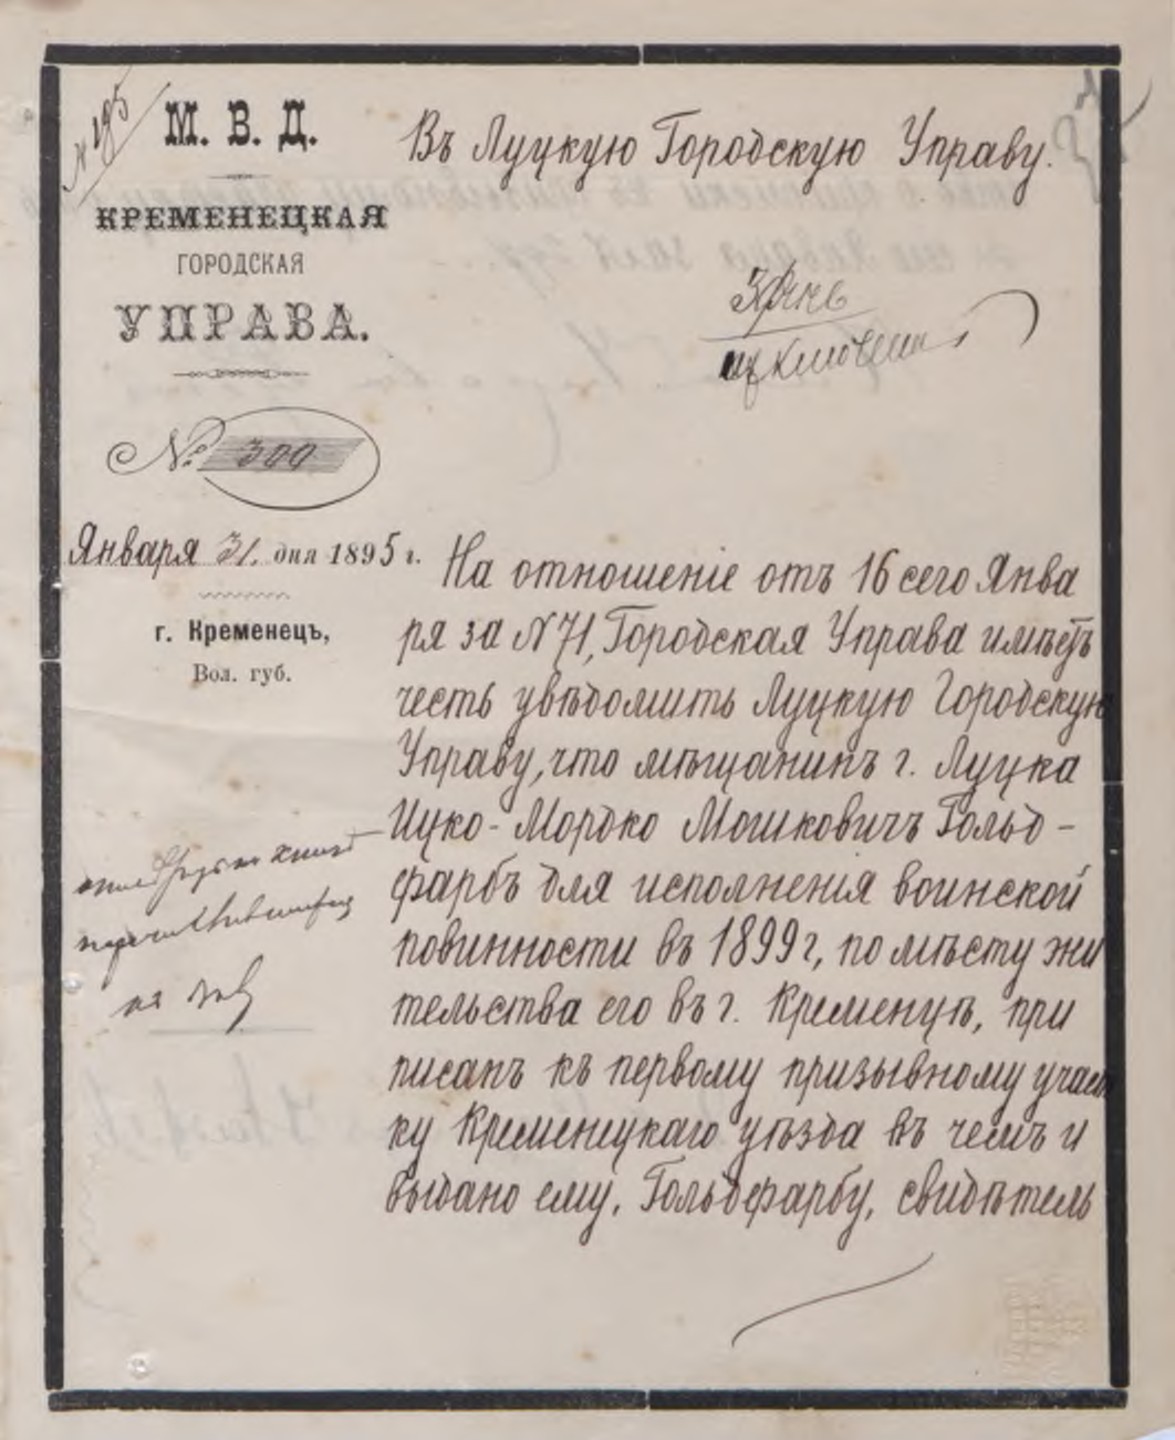 № 195
М. В. Д.
КРЕМЕНЕЦКАЯ
ГОРОДСКАЯ
УПРАВА.
№ 300
Января 31. дня 1895 г.
г. Кременецъ,
Вол. губ.
Въ Луцкую Городскую Управу.
На отношеніе отъ 16 сего Янва
ря за № 71, Городская Управа имѣетъ
честь увѣдомить Луцкую Городскую
Управу, что мѣщанинъ г. Луцка
Ицко-Мордко Мошковичъ Гольд-
фарбъ для исполненія воинской
повинности въ 1899 г, по мѣсту жи
тельства его въ г. Кременцѣ, при
писанъ къ первому призывному участ
ку Кременецкаго уѣзда въ чемъ и
выдано ему, Гольдфарбу, свидѣтель